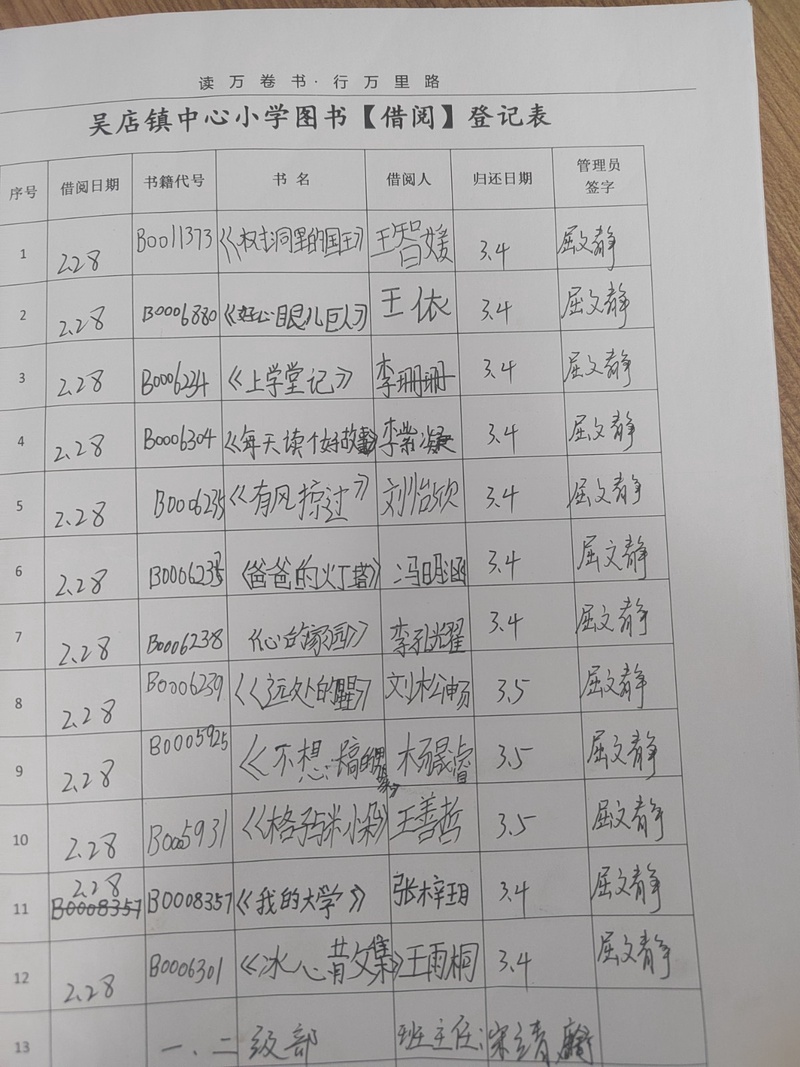 读万卷书·行万里路
吴店镇中心小学图书【借阅】登记表
序号 借阅日期 书籍代号 书名 借阅人 归还日期 管理员签字
1 2.28 B0011373 《树洞里的国王》 王智媛 3.4 屈文静
2 2.28 B0006880 《好心眼儿巨人》 王依 3.4 屈文静
3 2.28 B0006234 《上学堂记》 李珊珊 3.4 屈文静
4 2.28 B0006304 《每天读个好故事》 李紫凝 3.4 屈文静
5 2.28 B0006235 《有风掠过》 刘怡欣 3.4 屈文静
6 2.28 B0006237 《爸爸的灯塔》 冯明涵 3.4 屈文静
7 2.28 B0006238 《心的家园》 李孔耀 3.4 屈文静
8 2.28 B0006239 《远处的醒》 刘松畅 3.5 屈文静
9 2.28 B0005925 《不想 的 杨晟睿 3.5 屈文静
10 2.28 B0005931 《格子与米小朵》 王善哲 3.5 屈文静
11 2.28 B0008357 B0008357 《我的大学》 张梓玥 3.4 屈文静
12 2.28 B0006301 《冰心散文集》 王雨桐 3.4 屈文静
13 一、二级部 班主任:宋立青